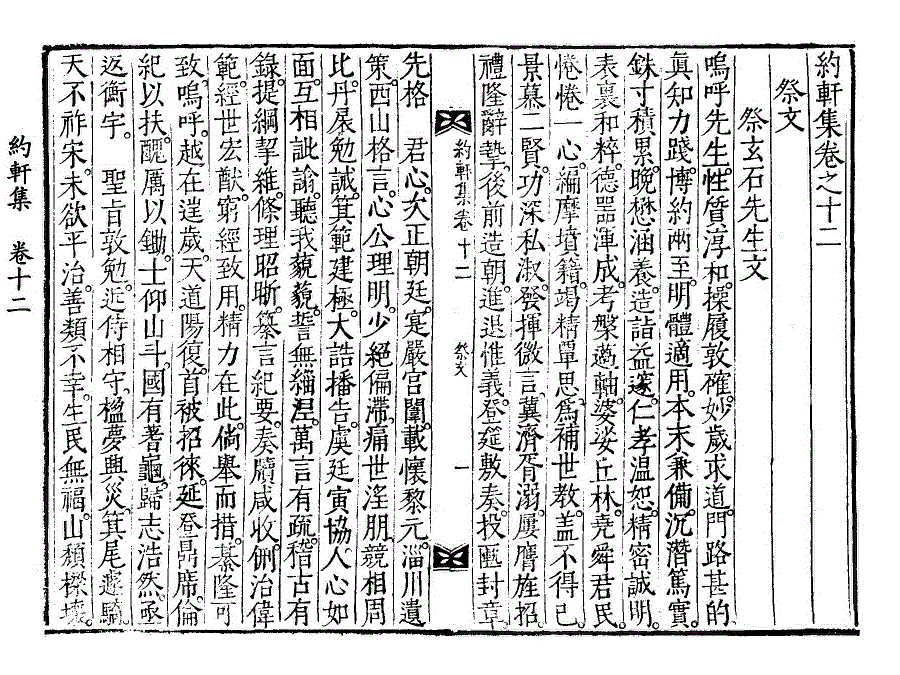 約軒集卷之十二
祭文
祭玄石先生文
嗚呼先生。性質淳和。操履敦確。妙歲求道。門路甚的。
眞知力踐。博約兩至。明體適用。本末兼備。沉潛篤實。
銖寸積累。晩懋涵養。造詣益邃。仁孝温恕。精密誠明。
表裏和粹。德器渾成。考槃薖軸。婆娑丘林。堯舜君民。
惓惓一心。編摩墳籍。竭精單思。爲補世教。盖不得已。
景慕二賢。功深私淑。發揮微言。冀濟胥溺。屢膺旌招。
禮隆辭摯。後前造朝。進退惟義。登筵敷奏。投匭封章。
約軒集卷十二
祭文
一
先格 君心。大正朝廷。寔嚴宮闈。載懷黎元。淄川遺
策。西山格言。心公理明。少絕偏滯。痛世淫朋。競相周
比。丹扆勉誠。箕範建極。大誥播告。虞廷寅協。人心如
面。互相訿謚。聽我藐藐。誓無緇涅。萬言有疏。稽古有
錄。提綱挈維。條理昭晣。纂言紀要。奏牘咸收。侀治偉
範。經世宏猷。窮經致用。精力在此。倘舉而措。綦隆可
致。嗚呼。越在逹歲。天道陽復。首被招徠。延登昺席。倫
紀以扶。醜厲以鋤。士仰山斗。國有蓍龜。歸志浩然。亟
返衡宇。 聖旨敦勉。近侍相守。楹夢興災。箕尾遽騎。
天不祚宋。未欲平治。善類不幸。生民無福。山頹樑壞。
約軒集 卷十二